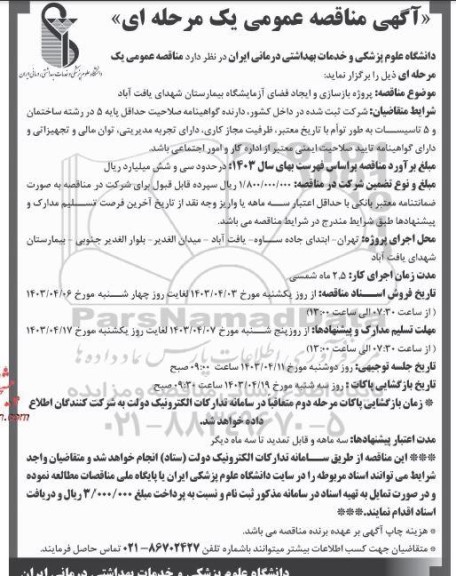 «آگهی مناقصه عمومی یک مرحله ای»
دانشگاه علوم پزشکی و خدمات بهداشتی درمانی ایران در نظر دارد مناقصه عمومی یک
مرحله ای ذیل را برگزار نماید:
موضوع مناقصه: پروژه بازسازی و ایجاد فضای آزمایشگاه بیمارستان شهدای یافت آباد
شرایط متقاضیان: شرکت ثبت شده در داخل کشور، دارنده گواهینامه صلاحیت حداقل پایه ۵ در رشته ساختمان
و ۵ تاسیسات به طور توأم با تاریخ معتبر، ظرفیت مجاز کاری، دارای تجربه مدیریتی، توان مالی و تجهیزاتی و
دارای گواهینامه تایید صلاحیت ایمنی معتبر از اداره کار و امور اجتماعی باشد.
مبلغ برآورد مناقصه براساس فهرست بهای سال ۱۴۰۳: در حدود سی و شش میلیارد ریال
مبلغ و نوع تضمین شرکت در مناقصه: ۱/۸۰۰/۰۰۰/۰۰۰ ریال سپرده قابل قبول برای شرکت در مناقصه به صورت
ضمانتنامه معتبر بانکی با حداقل اعتبار سه ماهه یا واریز وجه نقد از تاریخ آخرین فرصت تسلیم مدارک و
پیشنهادها طبق شرایط مندرج در شرایط مناقصه می باشد.
محل اجرای پروژه: تهران- ابتدای جاده ساوه- یافت آباد - میدان الغدیر- بلوار الغدیر جنوبی - بیمارستان
شهدای یافت آباد
مدت زمان اجرای کار: ۲،۵ ماه شمسی
تاریخ فروش اسناد مناقصه: از روز یکشنبه مورخ ۱۴۰۳/۰۴/۰۳ لغایت روز چهار شنبه مورخ ۱۴۰۳/۰۴/۰۶
( از ساعت ۰۷:۳۰ الی ساعت ۱۳:۰۰)
مهلت تسلیم مدارک و پیشنهادها: از روز پنج شنبه مورخ ۱۴۰۳/۰۴/۰۷ لغایت روز یکشنبه مورخ ۱۴۰۳/۰۴/۱۷
( از ساعت ۰۷:۳۰ الی ساعت ۱۳:۰۰)
تاریخ جلسه توجیهی: روز دوشنبه مورخ ۱۴۰۳/۰۴/۱۱ ساعت ۰۹:۰۰ صبح
تاریخ بازگشایی پاکات : روز سه شنبه مورخ ۱۴۰۳/۰۴/۱۹ ساعت ۰۹:۳۰ صبح
* زمان بازگشایی پاکات مرحله دوم متعاقباً در سامانه تدارکات الکترونیک دولت به شرکت کنندگان اطلاع
داده خواهد شد.
مدت اعتبار پیشنهادها: سه ماهه و قابل تمدید تا سه ماه دیگر
*** این مناقصه از طریق سامانه تدارکات الکترونیک دولت (ستاد) انجام خواهد شد و متقاضیان واجد
شرایط می توانند اسناد مربوطه را در سایت دانشگاه علوم پزشکی ایران یا پایگاه ملی مناقصات مطالعه نموده
و در صورت تمایل به تهیه اسناد در سامانه مذکور ثبت نام و نسبت به پرداخت مبلغ ۳/۰۰۰/۰۰۰ ریال و دریافت
اسناد اقدام نمایند.***
* هزینه چاپ آگهی بر عهده برنده مناقصه می باشد.
* متقاضیان جهت کسب اطلاعات بیشتر میتوانند باشماره تلفن ۸۶۷۰۲۴۲۷-۰۲۱ تماس حاصل فرمایند.
دانشگاه علوم پزشکی و خدمات بهداشتی درمانی ایران
ParsNamadData
۰۲۱-۸۸۳۴۹۶۷۰-۵